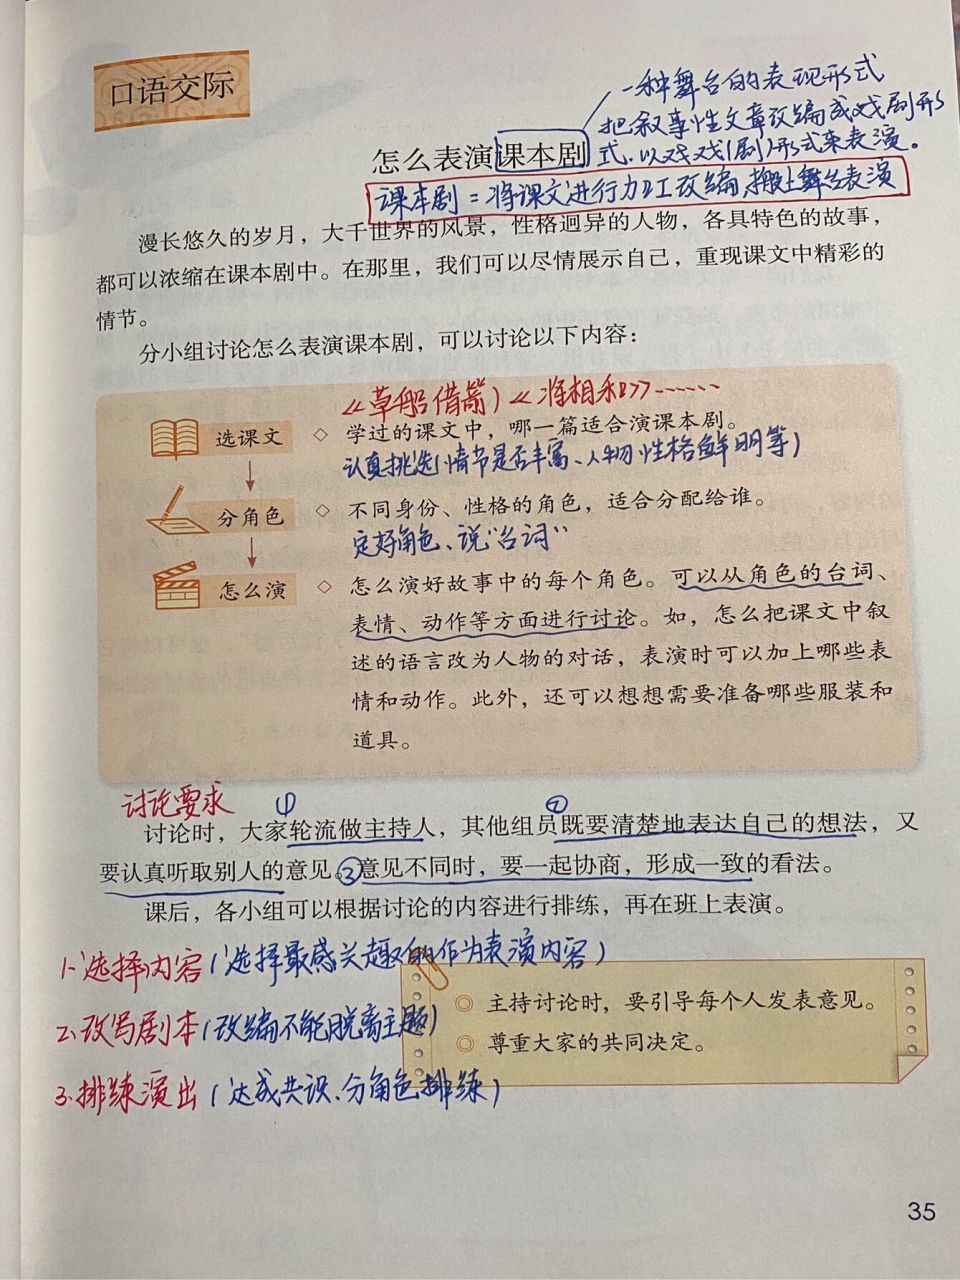 口语交际
一种舞台的表现形式
把叙事性文章改编成戏剧形
怎么表演课本剧
式.以戏戏(剧)形式来表演。
课本剧=将课文进行加工改编,搬上舞台表演
漫长悠久的岁月，大千世界的风景，性格迥异的人物，各具特色的故事，
都可以浓缩在课本剧中。在那里，我们可以尽情展示自己，重现课文中精彩的
情节。
分小组讨论怎么表演课本剧，可以讨论以下内容：
《草船借箭》《将相和》……
选课文 ◇ 学过的课文中，哪一篇适合演课本剧。
认真挑选(情节是否丰富、人物性格鲜明等)
分角色 ◇ 不同身份、性格的角色，适合分配给谁。
定好角色、说“台词”
怎么演 ◇ 怎么演好故事中的每个角色。可以从角色的台词、
表情、动作等方面进行讨论。如，怎么把课文中叙
述的语言改为人物的对话，表演时可以加上哪些表
情和动作。此外，还可以想想需要准备哪些服装和
道具。
讨论要求 ① ②
讨论时，大家轮流做主持人，其他组员既要清楚地表达自己的想法，又
要认真听取别人的意见。③意见不同时，要一起协商，形成一致的看法。
课后，各小组可以根据讨论的内容进行排练，再在班上表演。
1.选择内容(选择最感兴趣的作为表演内容)
◎ 主持讨论时，要引导每个人发表意见。
2.改写剧本(改编不能脱离主题)
◎ 尊重大家的共同决定。
3.排练演出(达成共识、分角色排练)
35